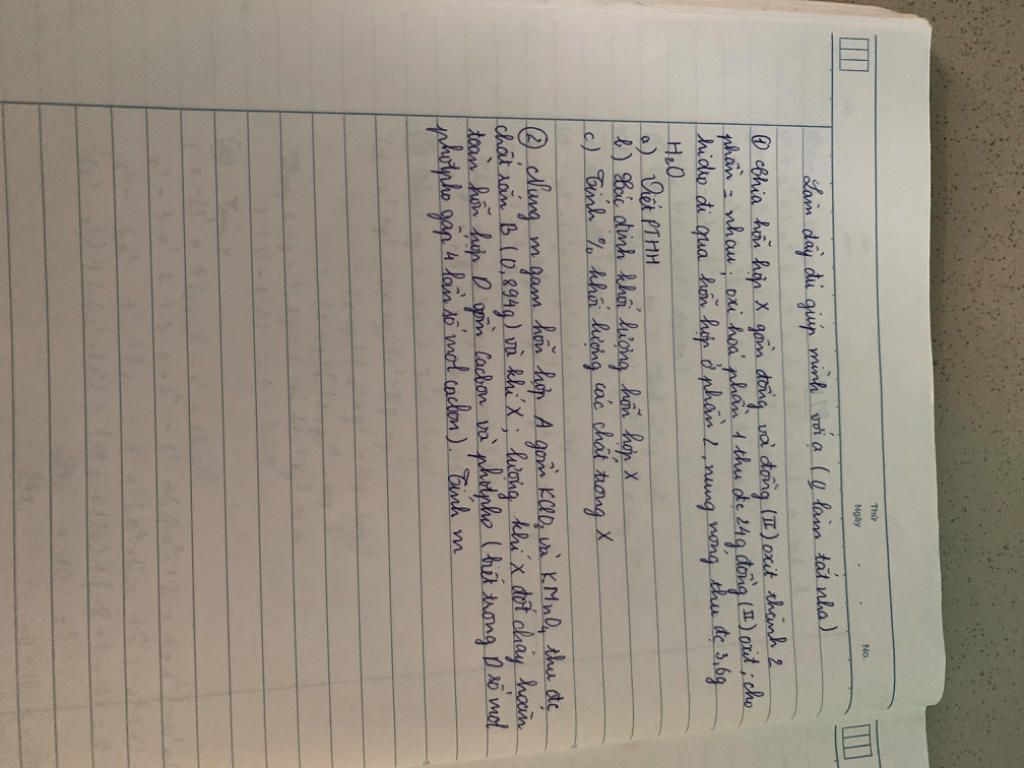 Thứ
Ngày
No.
Làm đầy đủ giúp mình với ạ (ko làm tắt nha)
① Chia hỗn hợp X gồm đồng và đồng (II) oxit thành 2
phần = nhau, oxi hoá phần 1 thu đc 24g đồng (II) oxit; cho
hidro đi qua hỗn hợp ở phần 2, nung nóng thu đc 3,6g
H₂O
a) Viết PTHH
b) Xác định khối lượng hỗn hợp X
c) Tính % khối lượng các chất trong X
② Nung m gam hỗn hợp A gồm KClO₃ và KMnO₄ thu đc
chất rắn B (0,894g) và khí X, lượng khí X đốt cháy hoàn
toàn hỗn hợp D gồm cacbon và photpho (biết trong D số mol
photpho gấp 4 lần số mol cacbon). Tính m